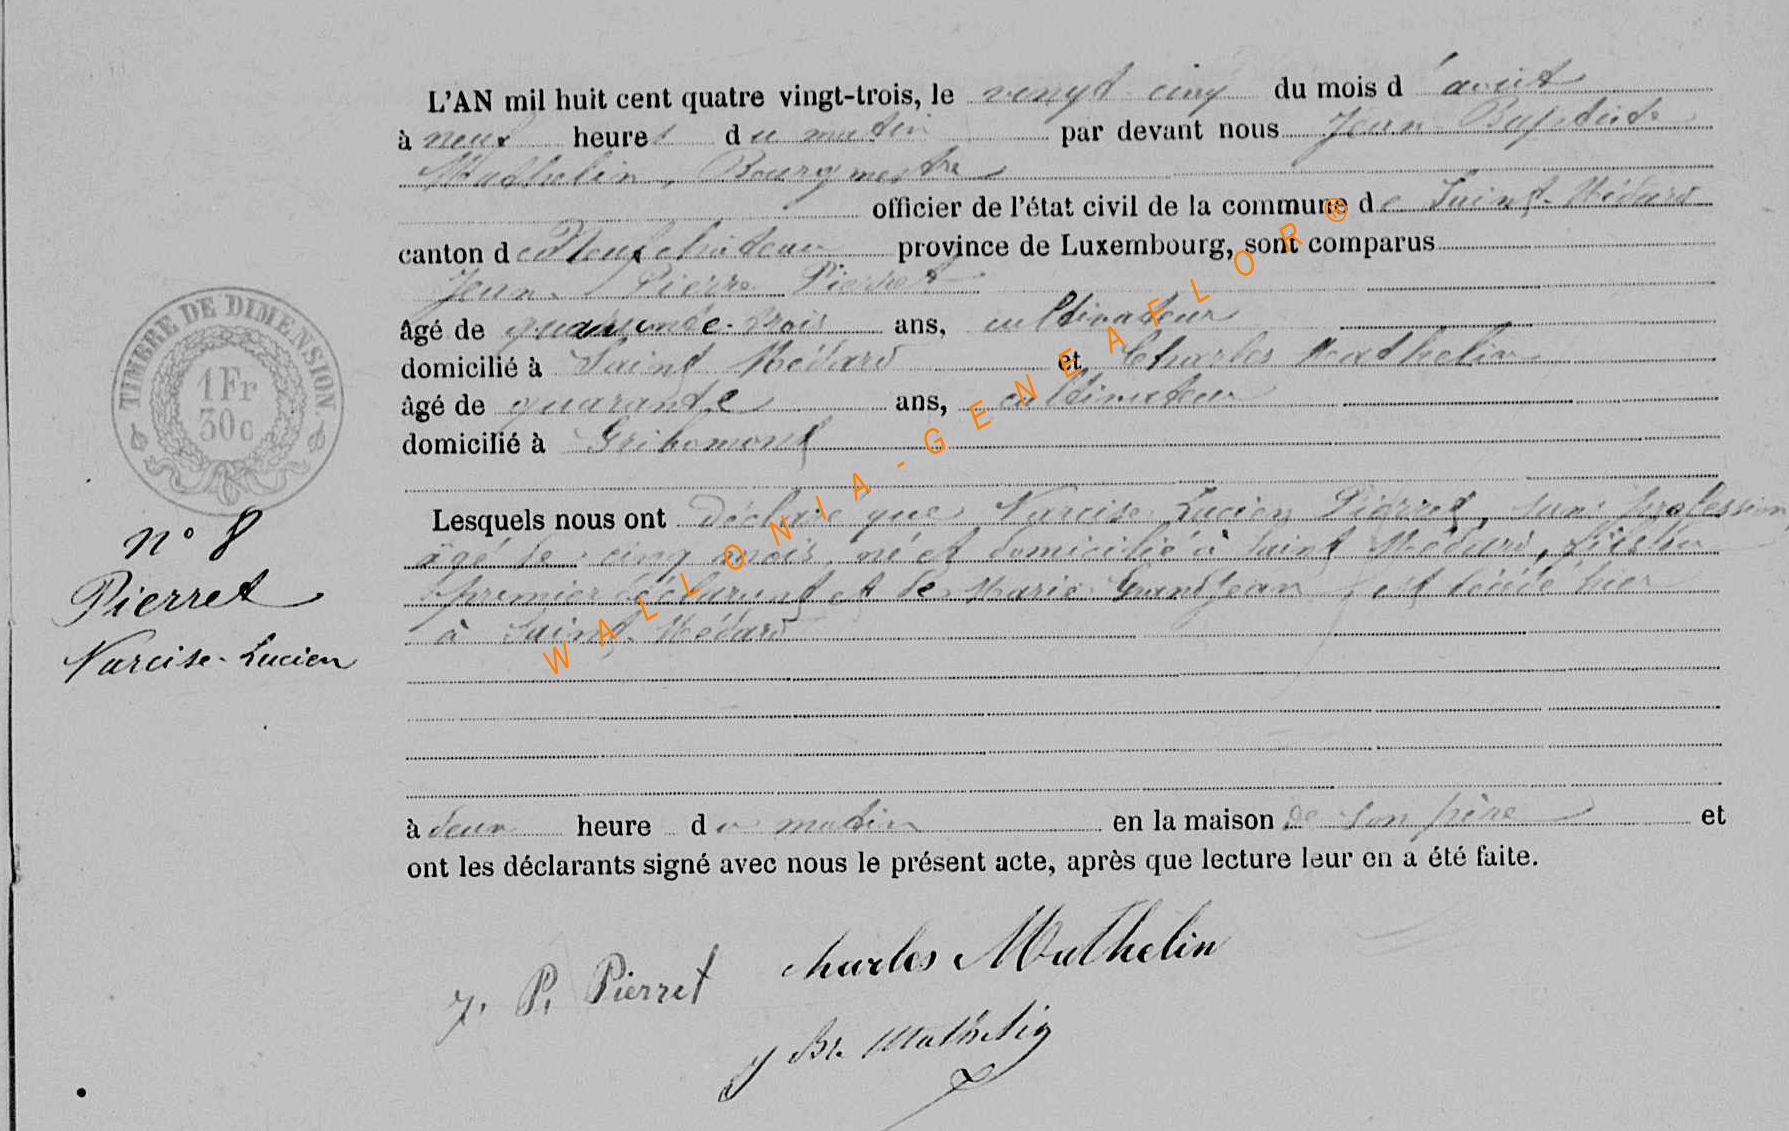 L'AN mil huit cent quatre vingt-trois, le vengt cinq du mois d'août
à neuf heures du matin par devant nous Jean Baptiste
Mathelin, Bourgmestre
officier de l'état civil de la commune de Saint-Médard
canton de Neufchâteau province de Luxembourg, sont comparus
Jean-Pierre Pierret
âgé de quarante-trois ans, cultivateur
domicilié à Saint Médard et Charles Mathelin
âgé de quarante ans, cultivateur
domicilié à Gribomont
TIMBRE DE DIMENSION
1Fr
30c
Lesquels nous ont déclaré que Narcise Lucien Pierret, sans profession
âgé de cinq mois, né et domicilié à Saint Médard, fils du
premier déclarant et de Marie Grandjean, est décédé hier
à Saint-Médard
n° 8
Pierret
Narcise-Lucien
à deux heure du matin en la maison de son père et
ont les déclarants signé avec nous le présent acte, après que lecture leur en a été faite.
J. P. Pierret
charles Mathelin
J Bte Mathelin
WALLONIA-GENEAFLOR®